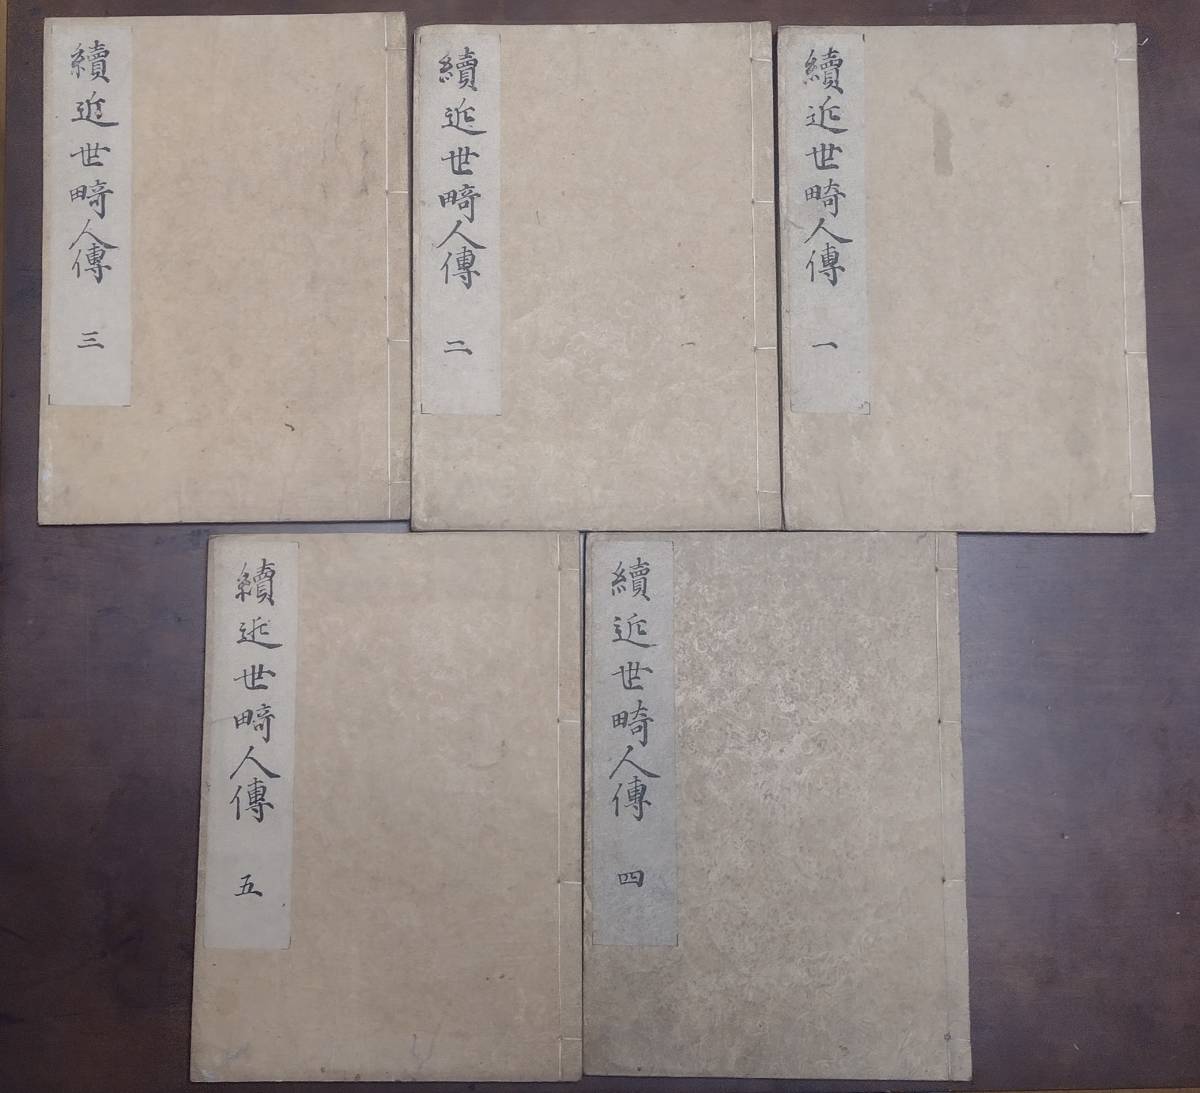 續近世畸人傳 一
續近世畸人傳 二
續近世畸人傳 三
續近世畸人傳 四
續近世畸人傳 五